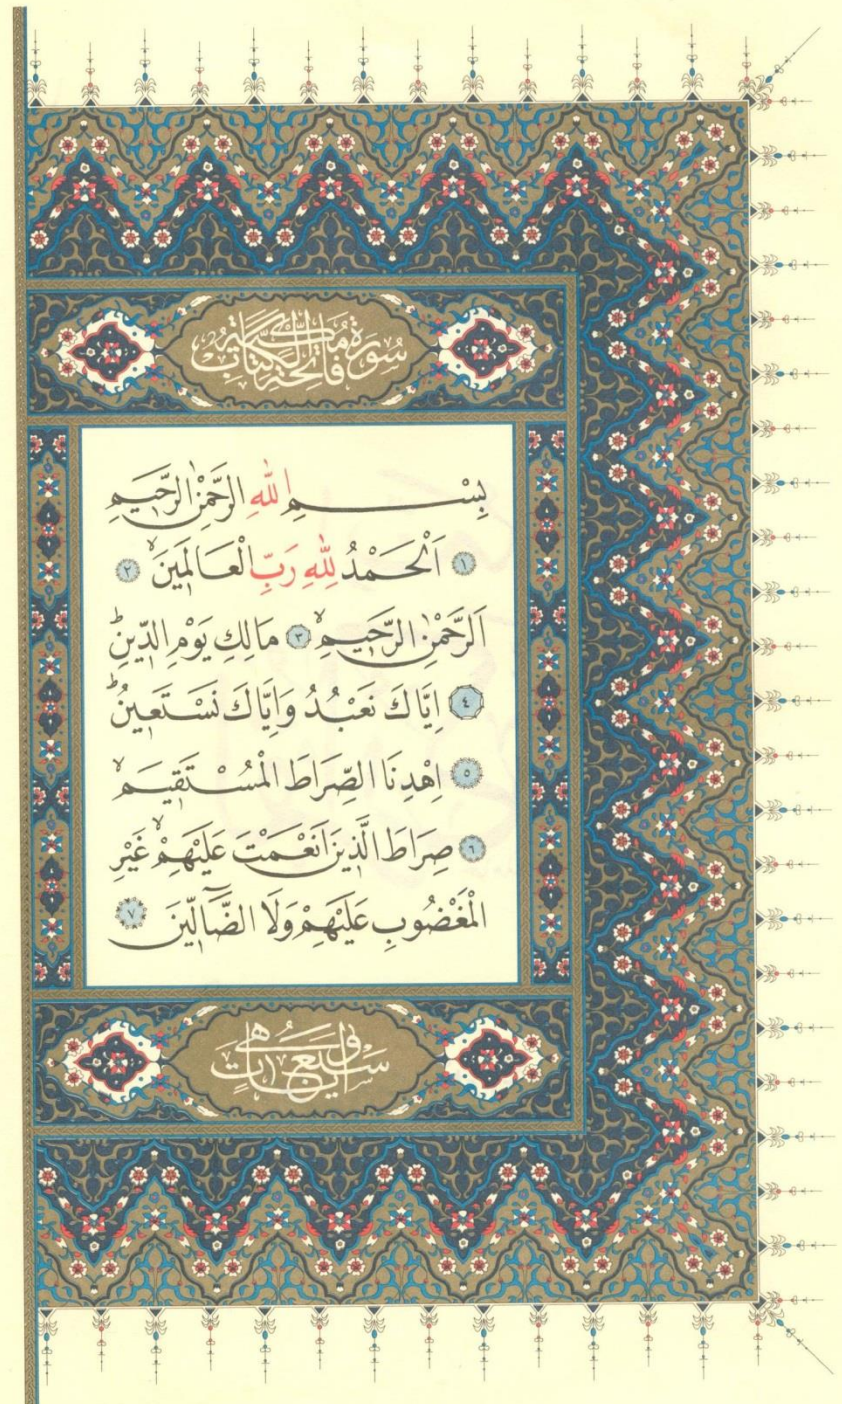 سُورَةُ فَاتِحَةِ الْكِتَابِ مَكِّيَّةٌ
بِسْمِ اللهِ الرَّحْمٰنِ الرَّحٖيمِ
١ اَلْحَمْدُ لِلّٰهِ رَبِّ الْعَالَمٖينَۙ ٢
اَلرَّحْمٰنِ الرَّحٖيمِۙ ٣ مَالِكِ يَوْمِ الدّٖينِؕ
٤ اِيَّاكَ نَعْبُدُ وَاِيَّاكَ نَسْتَعٖينُؕ
٥ اِهْدِنَا الصِّرَاطَ الْمُسْتَقٖيمَۙ
٦ صِرَاطَ الَّذٖينَ اَنْعَمْتَ عَلَيْهِمْۙ غَيْرِ
الْمَغْضُوبِ عَلَيْهِمْ وَلَا الضَّٓالّٖينَ ٧
وَهِيَ سَبْعُ اٰيَاتٍ